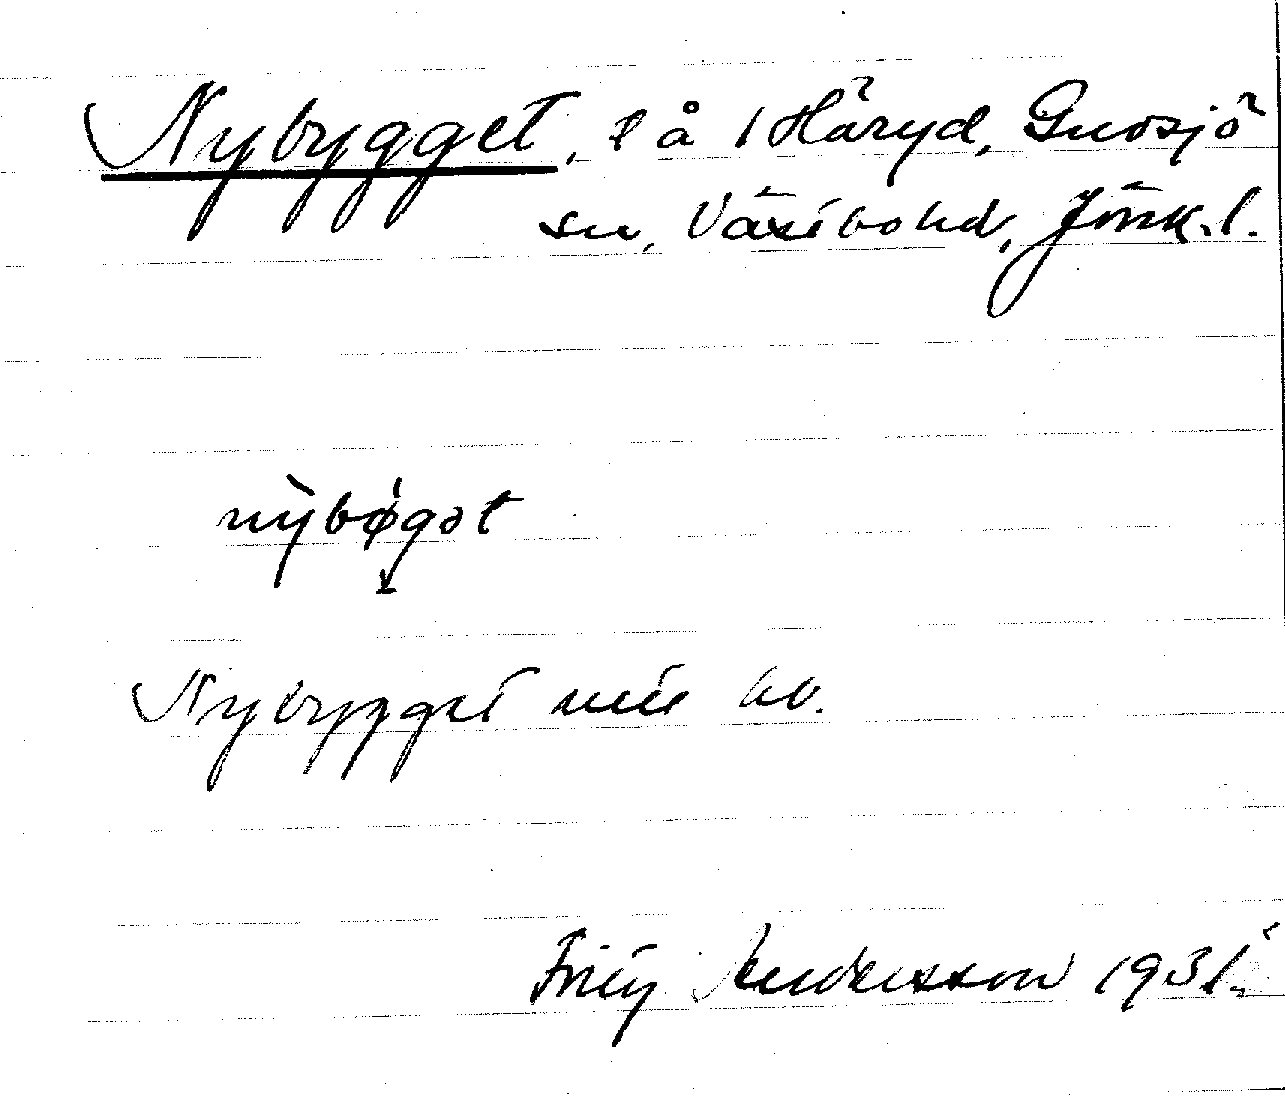 Nybygget, l å 1 Håryd, Gnosjö
sn, Västbo hd, Jönk. l.
nỳbǿgət
Nybygget mtb hv.
Fritz Andersson 1931.